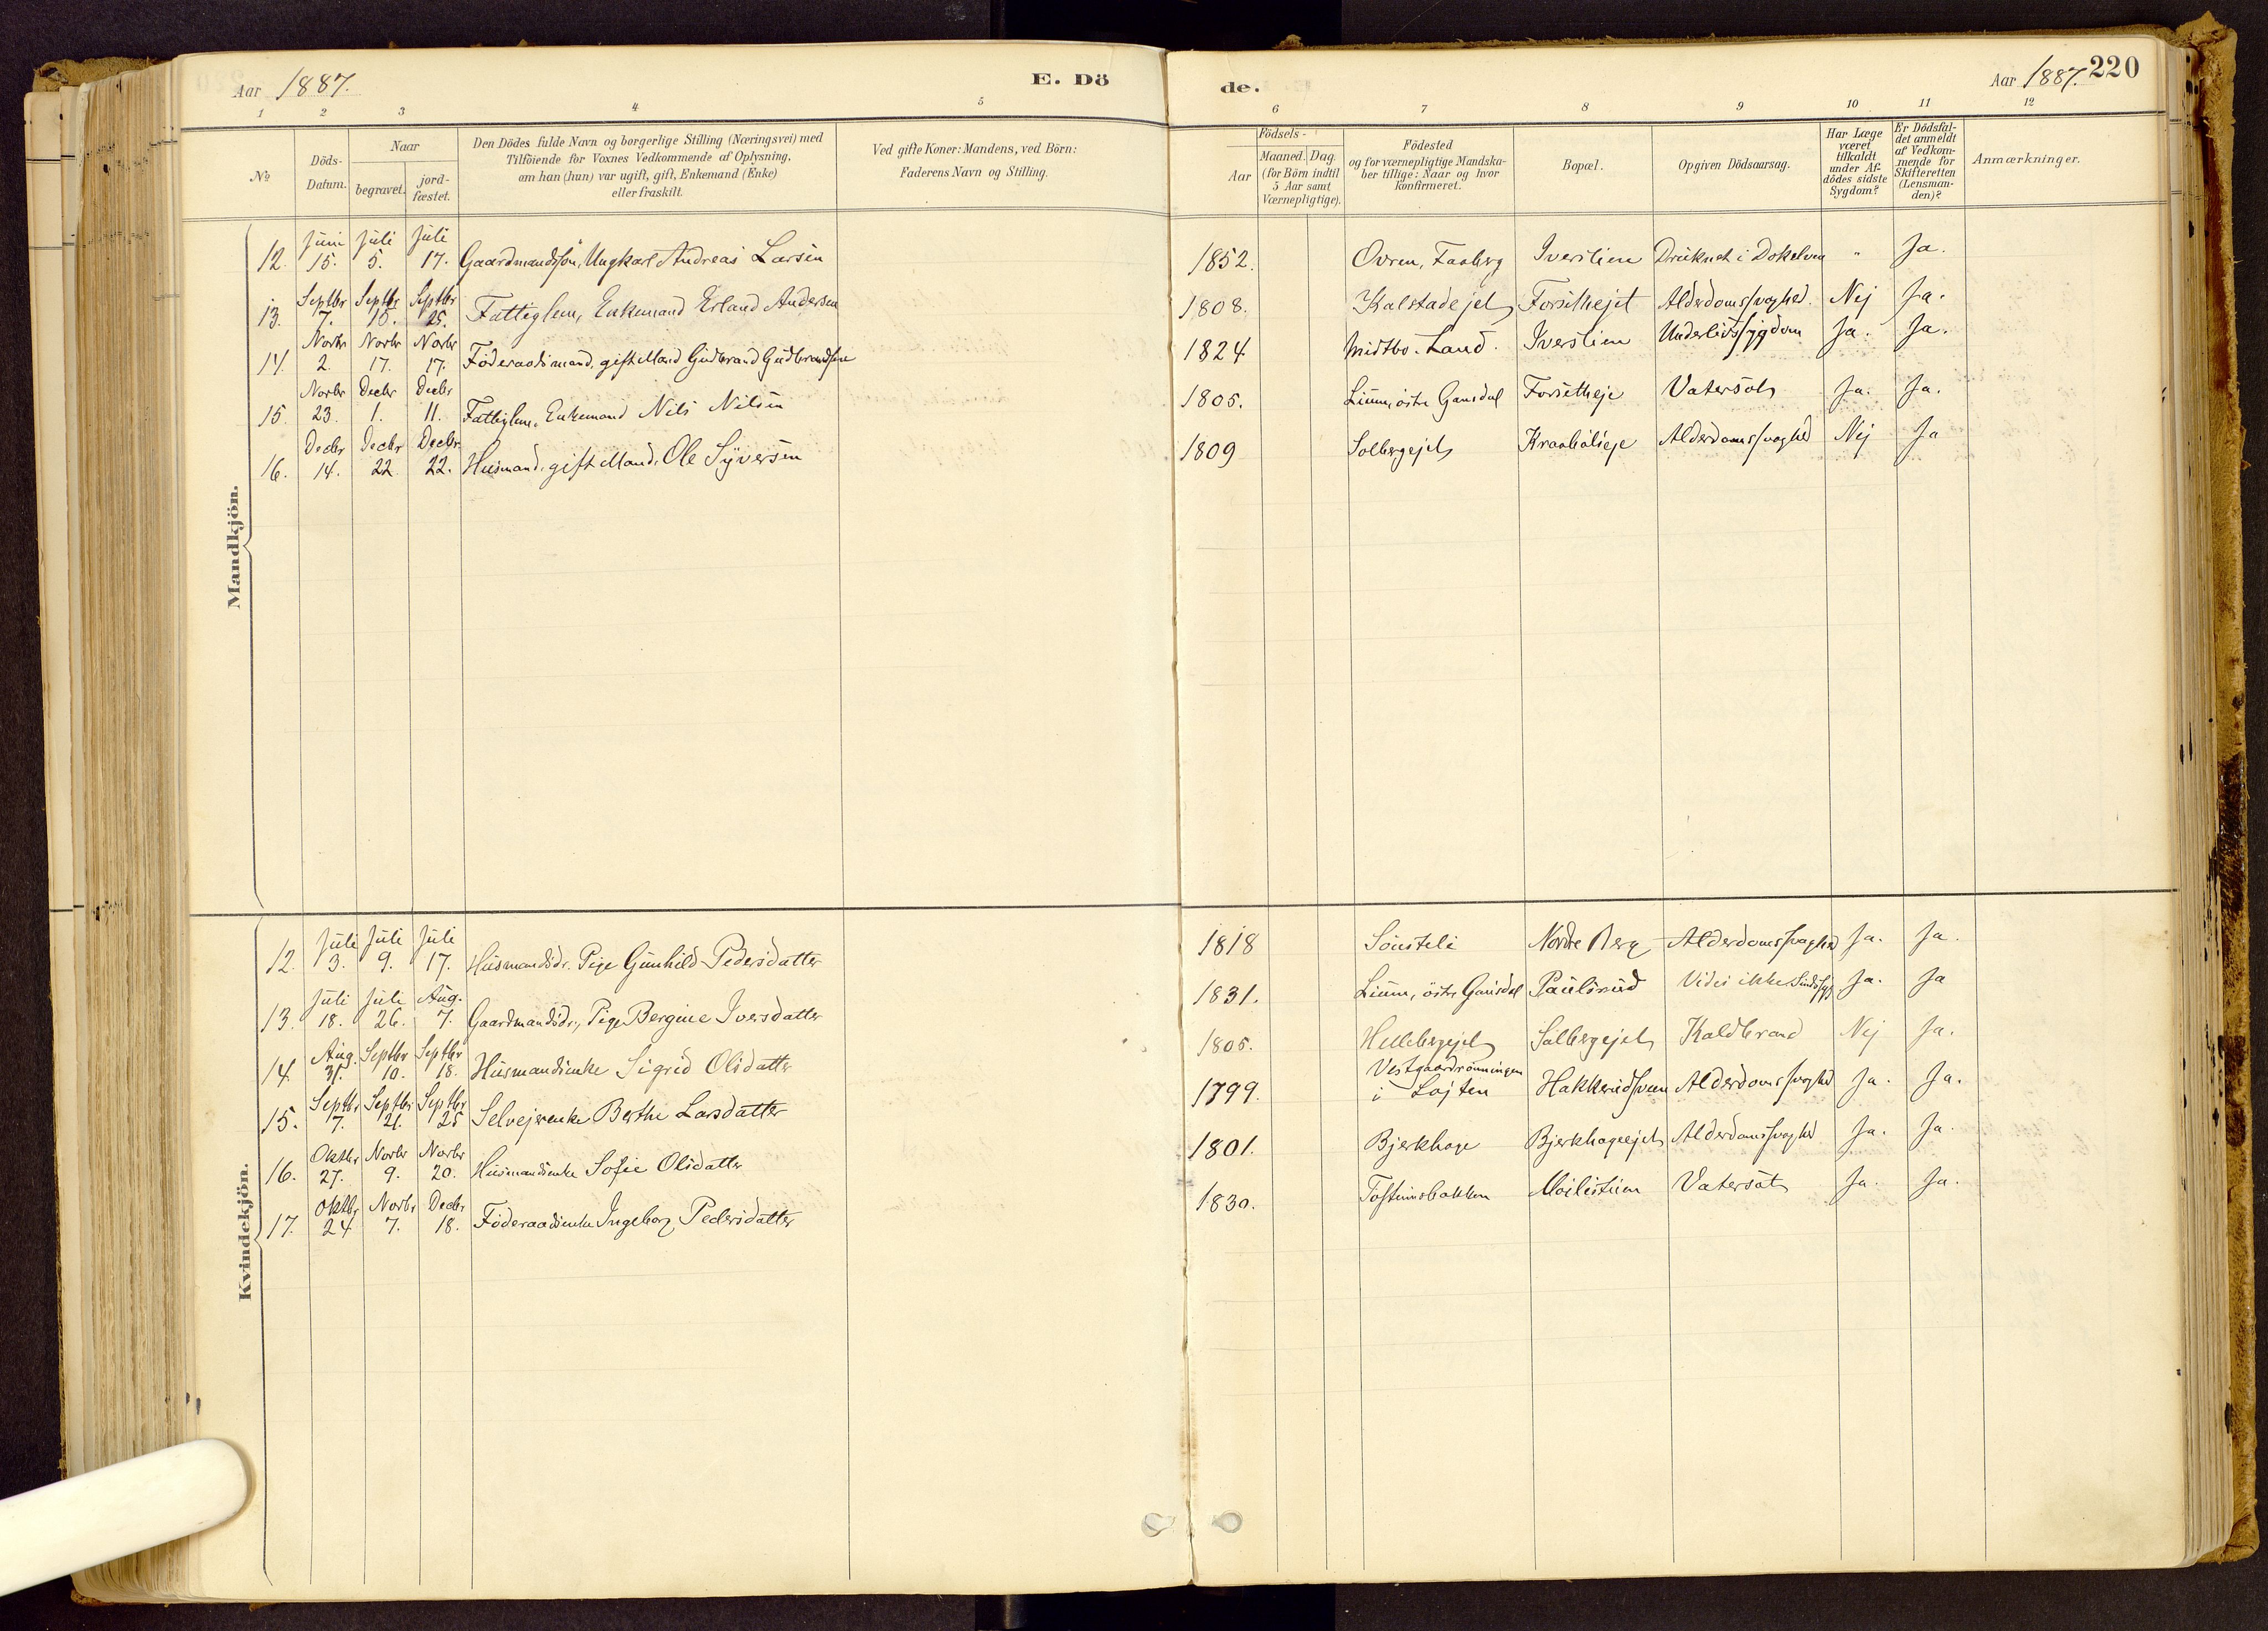 Aar 1887. E. Dö de. Aar 1887. 220
1 2 3 4 5 6 7 8 9 10 11 12
No
Döds-Datum.
Naar
begravet.
jord-fæstet.
Den Dödes fulde Navn og borgerlige Stilling (Næringsvei) med
Tilföiende for Voxnes Vedkommende af Oplysning,
om han (hun) var ugift, gift, Enkemand (Enke)
eller fraskilt.
Ved gifte Koner: Mandens, ved Börn:
Faderens Navn og Stilling.
Födsels-
Aar
Maaned. Dag.
(for Börn indtil
5 Aar samt
Værnepligtige).
Födested
og for værnepligtige Mandska-
ber tillige: Naar og hvor
konfirmeret.
Bopæl.
Opgiven Dödsaarsag.
Har Læge
været
tilkaldt
under Af-
dödes sidste
Sygdom?
Er Dödsfal-
det anmeldt
af Vedkom-
mende for
Skifteretten
(Lensman-
den)?
Anmærkninger.
Mandkjön.
Juni Juli Juli
12. 15. 5. 17. Gaardmandssön, Ungkarl Andreas Larsen 1852. Ovren, Faaberg Iverslien Druknet i Dokelven " Ja.
Septbr Septbr Septbr
13. 7. 15. 25. Fattiglem, Enkemand Erland Andersen 1808. Kalstadejet Forsethejet Alderdomssvaghed. Nej Ja.
Novbr Novbr Novbr
14. 2. 17. 17. Föderaadsmand, gift Mand Gudbrand Gudbrandsen 1824 Midtbo. Land. Iverslien Underlivssygdom Ja. Ja.
Novbr Decbr Decbr
15. 23. 1. 11. Fattiglem, Enkemand Nils Nilsen 1805. Linum, östre Gausdal Forsetheje Vatersot Ja. Ja.
Decbr Decbr Decbr
16. 14. 22 22. Husmand, gift Mand, Ole Syversen 1809 Solbergejet Kraaböleje Alderdomssvaghed Nej Ja
Kvindekjön.
Juli Juli Juli
12. 3. 9. 17. Husmandsdr. Pige Gunhild Pedersdatter 1818 Sönsteli Nordre Berg Alderdomssvaghed Ja. Ja.
Juli Juli Aug.
13. 18. 26. 7. Gaardmandsdr., Pige Bergine Iversdatter 1831. Linum, östre Gausdal Paulsrud Vides ikke Sindssyg Ja. Ja
Aug. Septbr Septbr
14. 31. 10. 18. Husmandsenke Sigrid Olsdatter 1805. Hellebergejet Solbergejet Koldbrand Nej Ja.
Septbr Septbr Septbr
15. 7. 21. 25 Selvejerenke Berthe Larsdatter 1799. Vestgaardrönningen
i Löjten Hakkerudsveen Alderdomssvaghed Ja. Ja.
Oktbr Novbr Novbr
16. 27. 9. 20. Husmandsenke Sofie Olsdatter 1801. Bjerkhage Bjerkhageejet Alderdomssvaghed Ja. Ja.
Oktbr Novbr Decbr
17. 24 7. 18. Föderaadsenke Ingeborg Pedersdatter 1830. Tosteinsbakken Vatersot Ja. Ja.